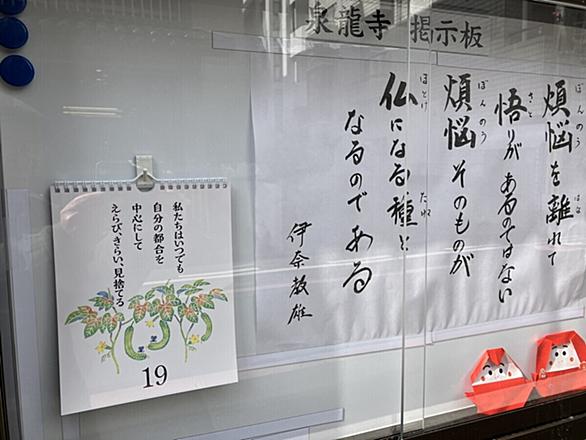 泉龍寺 掲示板
煩悩を離れて
悟りがあるのではない
煩悩そのものが
仏になる種と
なるのである
伊奈教雄
ぼんのう
はな
さと
ぼんのう
ほとけ
たね
私たちはいつでも
自分の都合を
中心にして
えらび、きらい、見捨てる
19